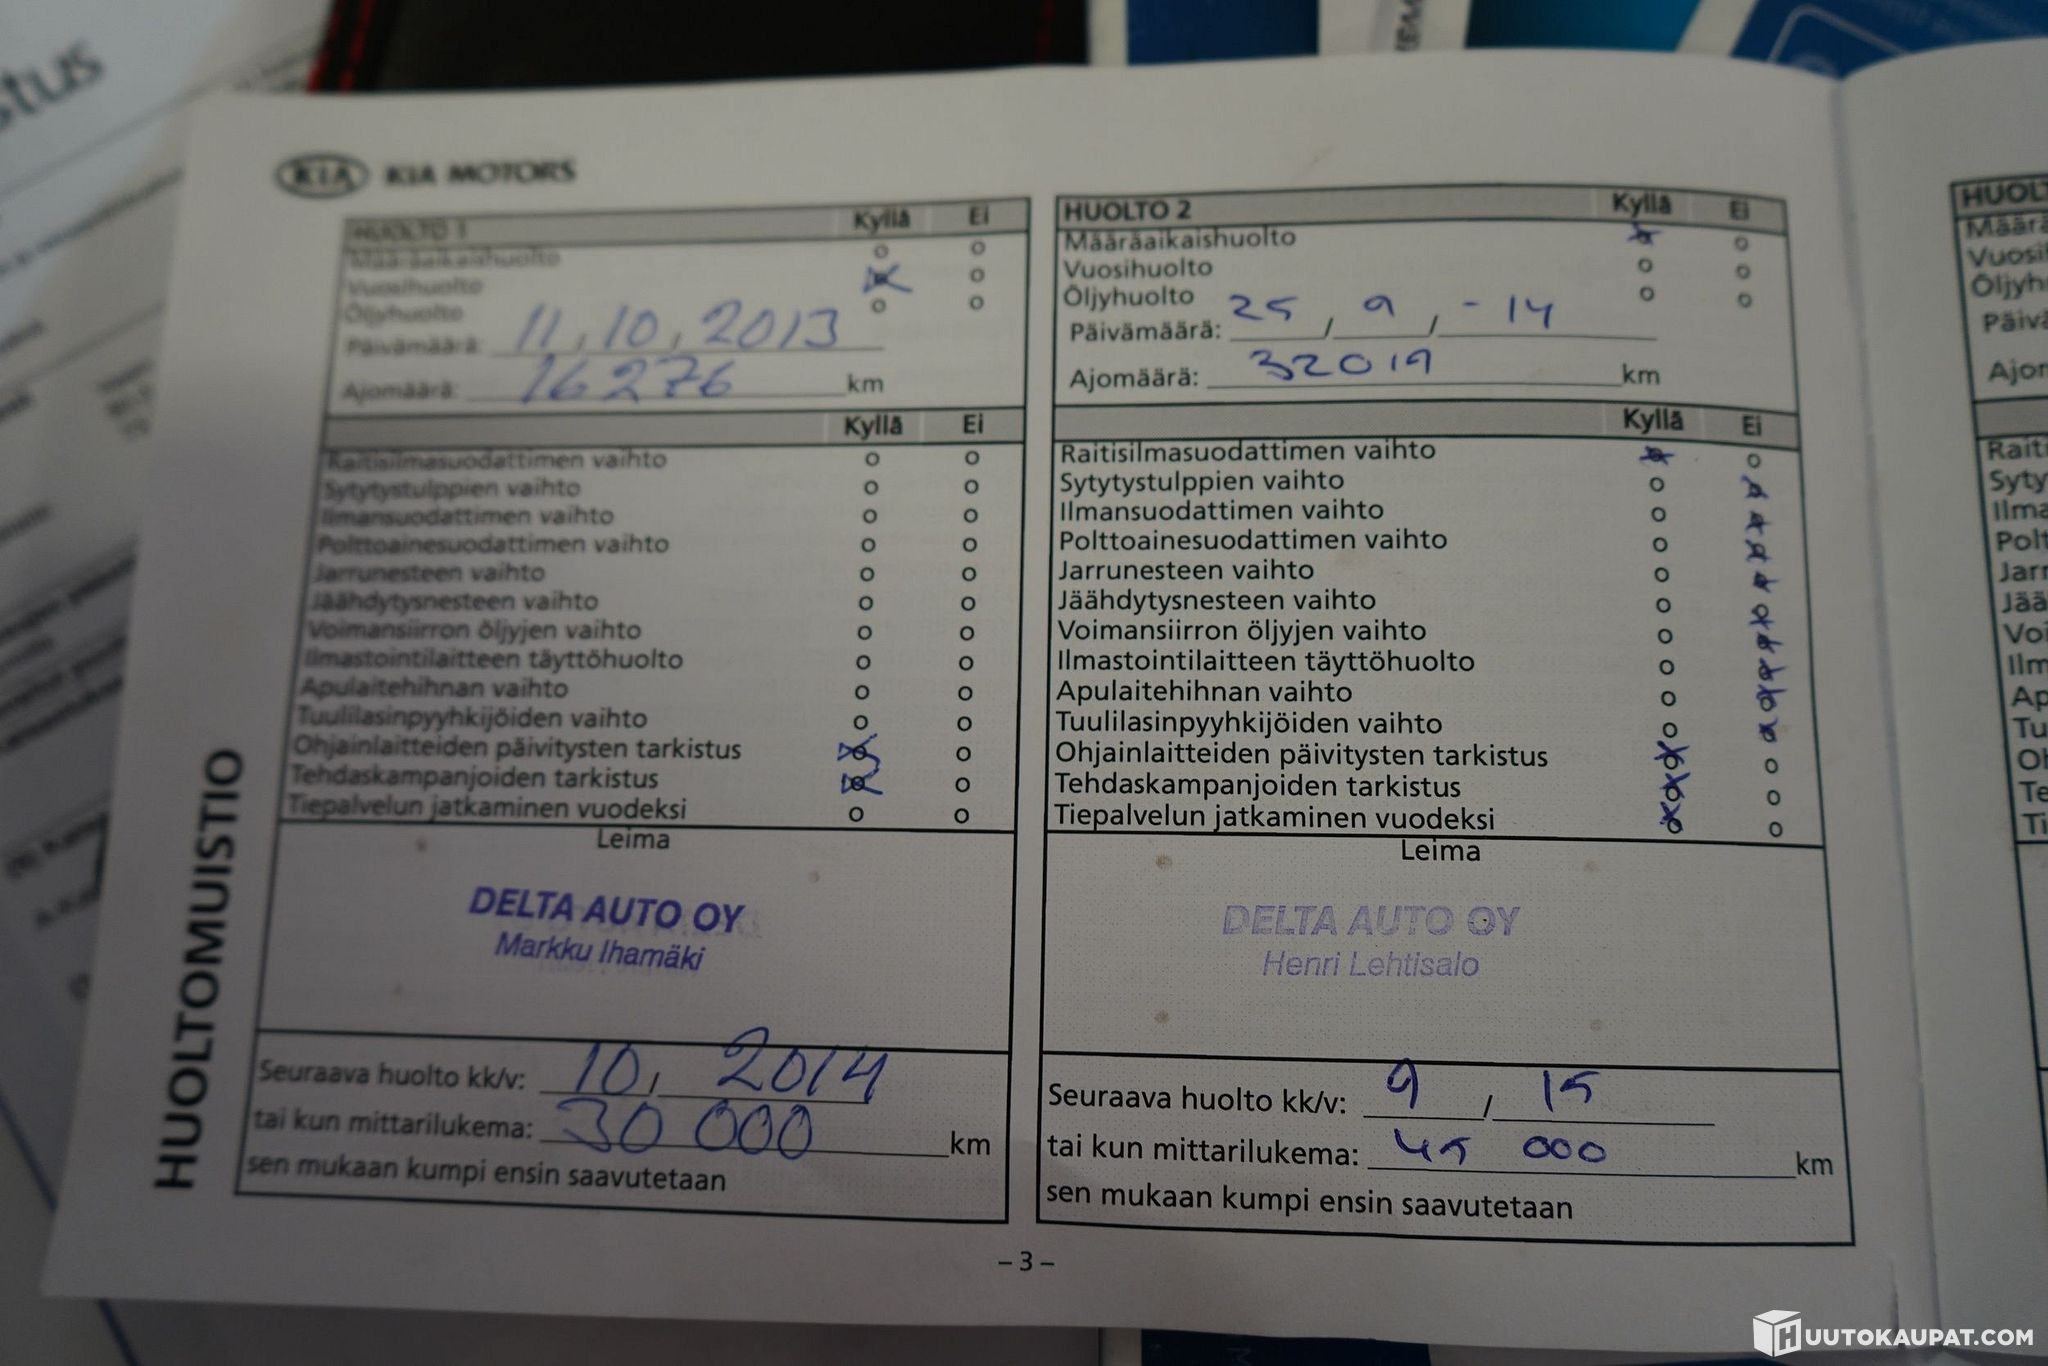 stus
KIA KIA MOTORS
HUOLTOMUISTIO
HUOLTO 1 Kyllä Ei
Määräaikaishuolto o o
Vuosihuolto x o
Öljyhuolto o o
Päivämäärä: 11, 10, 2013
Ajomäärä: 16276 km
Kyllä Ei
Raitisilmasuodattimen vaihto o o
Sytytystulppien vaihto o o
Ilmansuodattimen vaihto o o
Polttoainesuodattimen vaihto o o
Jarrunesteen vaihto o o
Jäähdytysnesteen vaihto o o
Voimansiirron öljyjen vaihto o o
Ilmastointilaitteen täyttöhuolto o o
Apulaitehihnan vaihto o o
Tuulilasinpyyhkijöiden vaihto o o
Ohjainlaitteiden päivitysten tarkistus x o
Tehdaskampanjoiden tarkistus x o
Tiepalvelun jatkaminen vuodeksi o o
Leima
DELTA AUTO OY
Markku Ihamäki
Seuraava huolto kk/v: 10 / 2014
tai kun mittarilukema: 30 000 km
sen mukaan kumpi ensin saavutetaan
HUOLTO 2 Kyllä Ei
Määräaikaishuolto x o
Vuosihuolto o o
Öljyhuolto o o
Päivämäärä: 25 / 9 / -14
Ajomäärä: 32019 km
Kyllä Ei
Raitisilmasuodattimen vaihto x o
Sytytystulppien vaihto o x
Ilmansuodattimen vaihto o x
Polttoainesuodattimen vaihto o x
Jarrunesteen vaihto o x
Jäähdytysnesteen vaihto o x
Voimansiirron öljyjen vaihto o x
Ilmastointilaitteen täyttöhuolto o x
Apulaitehihnan vaihto o x
Tuulilasinpyyhkijöiden vaihto o x
Ohjainlaitteiden päivitysten tarkistus x o
Tehdaskampanjoiden tarkistus x o
Tiepalvelun jatkaminen vuodeksi x o
Leima
DELTA AUTO OY
Henri Lehtisalo
Seuraava huolto kk/v: 9 / 15
tai kun mittarilukema: 45 000 km
sen mukaan kumpi ensin saavutetaan
– 3 –
HUOLT
Määrä
Vuosi
Öljyh
Päivä
Ajom
Raiti
Syty
Ilma
Polt
Jarr
Jää
Voi
Ilm
Ap
Tu
Oh
Te
Ti
HUUTOKAUPAT.COM